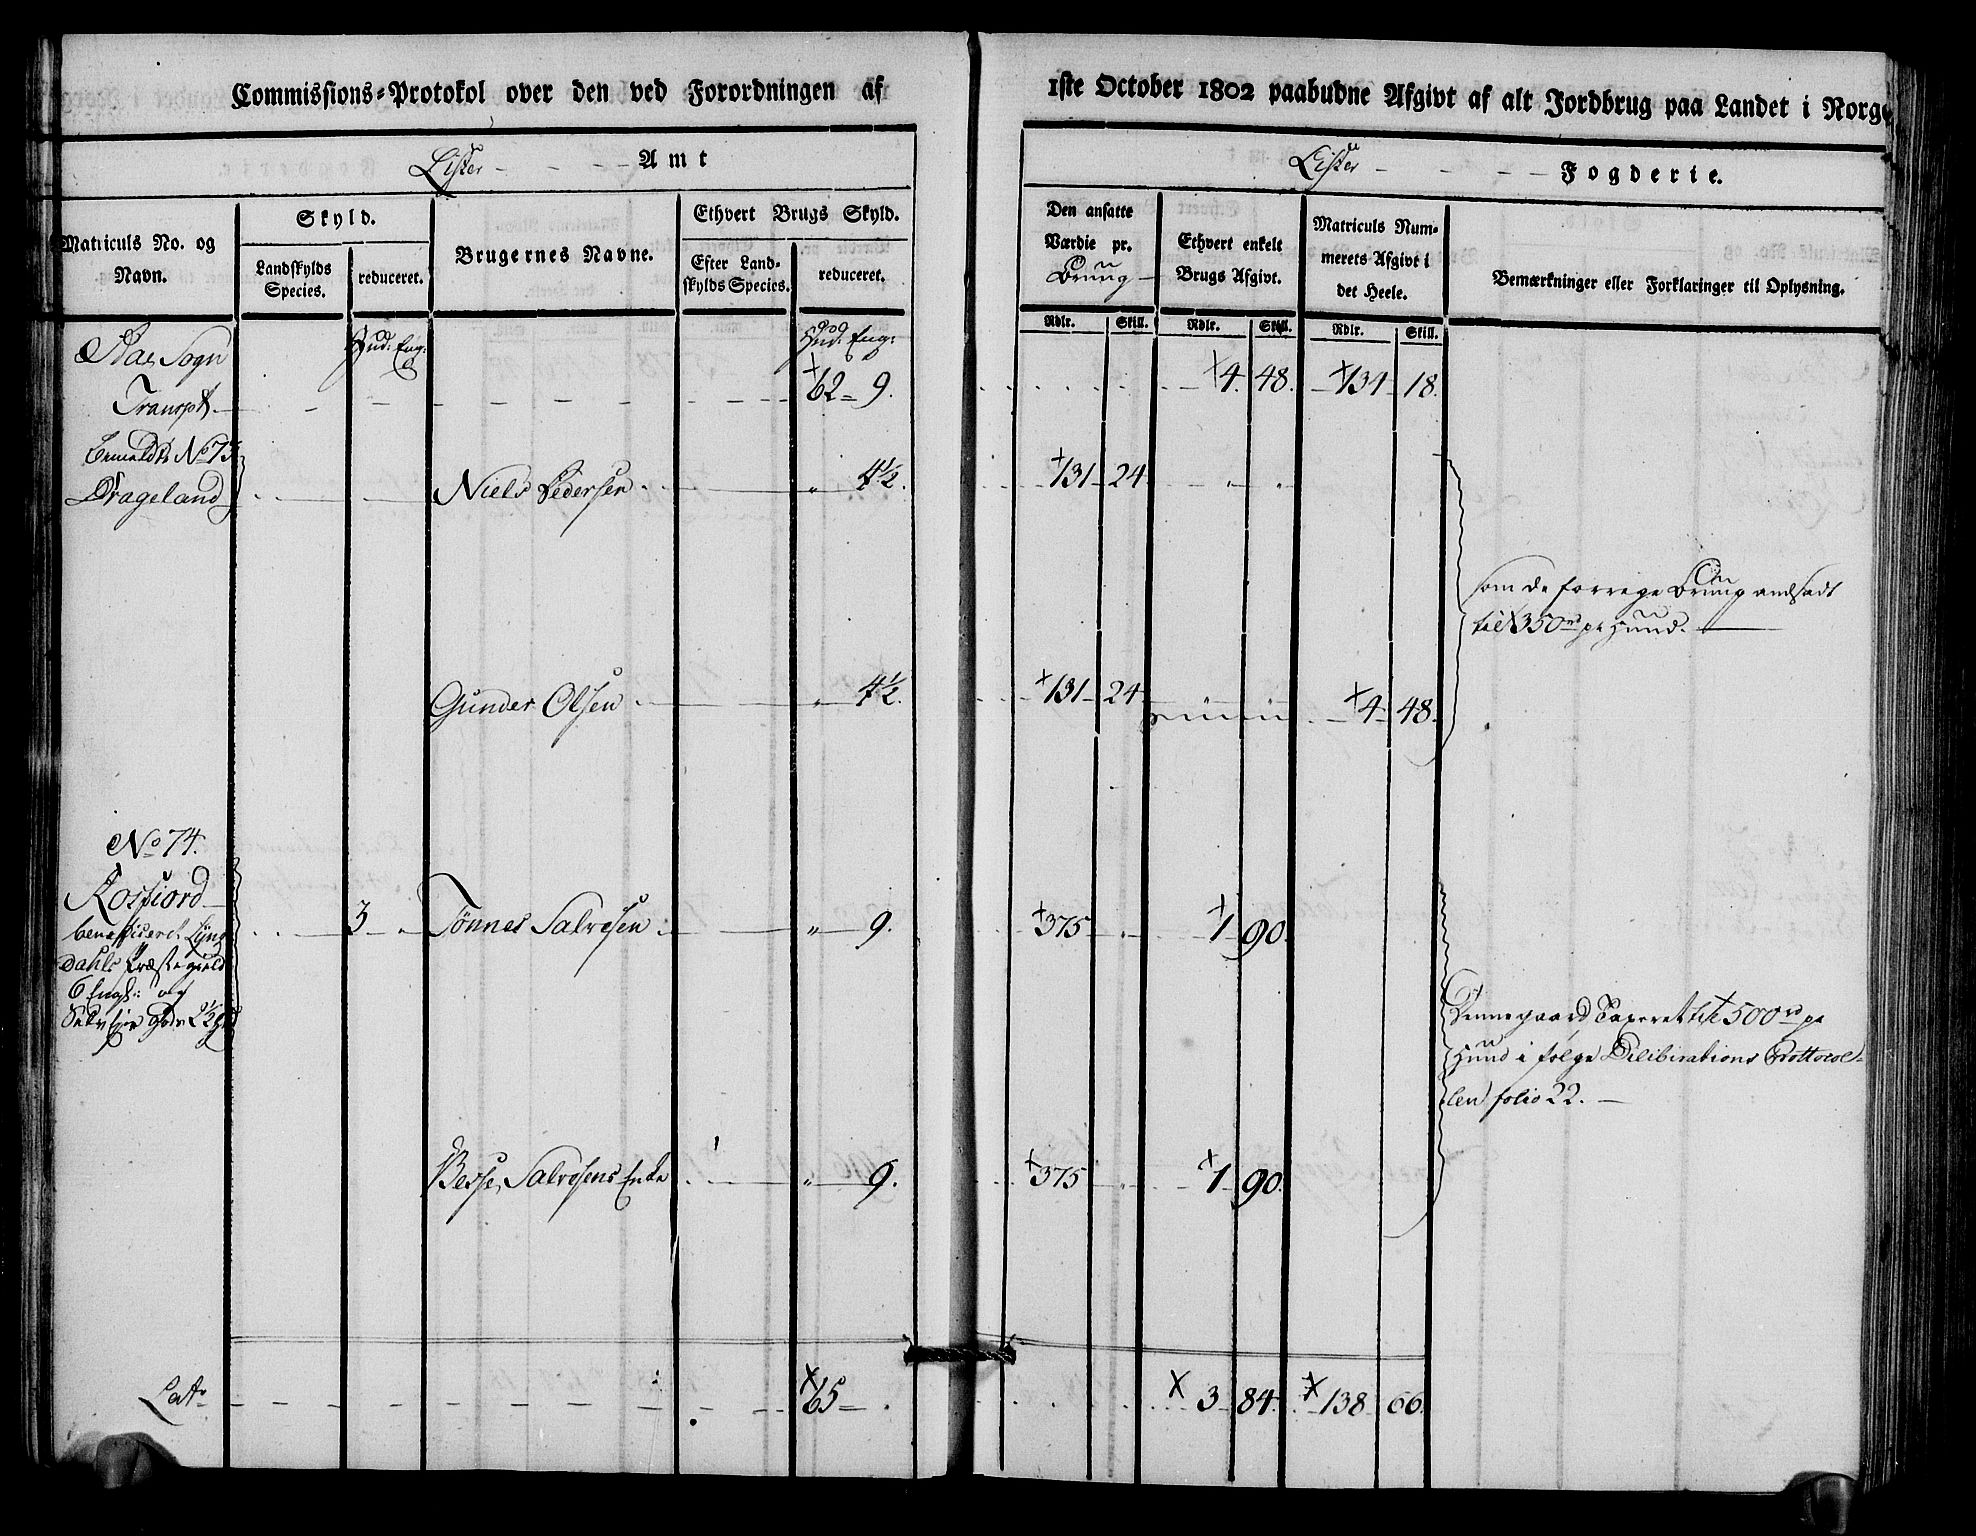 Commissions-Protokol over den ved Forordningen af
1ste October 1802 paabudne Afgivt af alt Jordbrug paa Landet i Norge
Lister Amt
Lister Fogderie.
Matriculs No. og Navn.
Skyld.
Landskylds Species.
reduceret.
Brugernes Navne.
Ethvert Brugs Skyld.
Efter Landskylds Species.
reduceret.
Den ansatte Værdie pr. Brug
Ethvert enkelt Brugs Afgivt.
Matriculs Nummerets Afgivt i det Heele.
Bemærkninger eller Forklaringer til Oplysning.
Rdlr. Skill. Rdlr. Skill. Rdlr. Skill.
Aae Sogn Hud: Eng: Hud: Eng:
Transpt 62 9. 4. 48. 134 18.
No 73
Drageland Niels Pedersen " 4½. 131 24 " "
som de forrige Brug andsadt
til 350 rd pr Huud.
Gunder Olsen " 4½. 131 24 4 48.
No 74.
Rosfiord 3 Tönnes Salvesen " 9. 375 " 1 90.
beneficeret Lyng
dahls Præstegield
6 Eng: og
Selveier Gods 2½
Denne gaard Taxeret til 500 rd pr
Huud i følge Delibirations Prottocol-
len folio 22.
Salvesens Enke " 9. 375 " 1 90.
Lat. 65 . 3 84. 138 66.